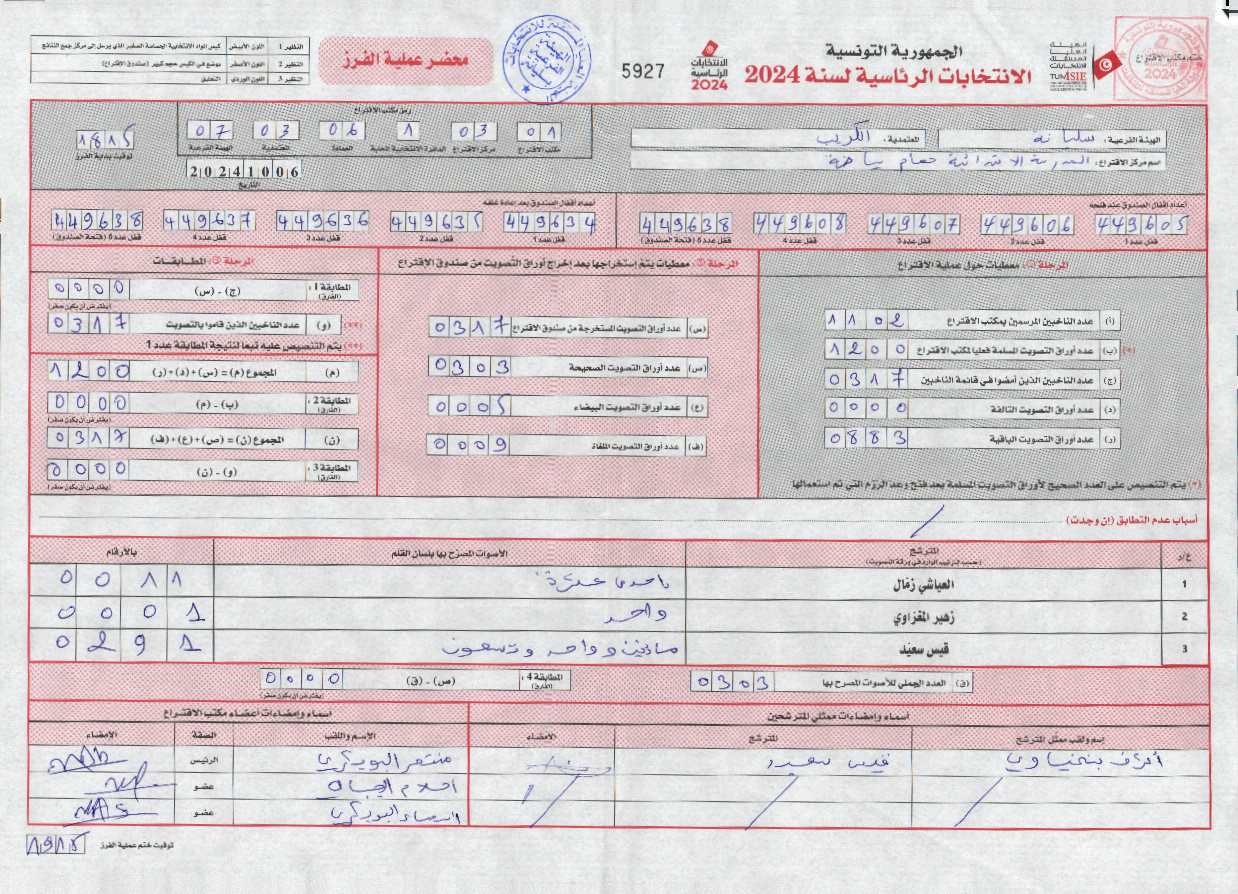 الجمهورية التونسية
الانتخابات الرئاسية لسنة 2024
الهيئة العليا المستقلة للانتخابات
TUNISIE
ختم مكتب الاقتراع
الانتخابات الرئاسية 2024
5927
محضر عملية الفرز
النظير 1 اللون الأبيض كيس المواد الانتخابية الحساسة الصغير الذي يرسل إلى مركز جمع النتائج
النظير 2 اللون الأصفر يوضع في الكيس حجم كبير (صندوق الاقتراع)
النظير 3 اللون الوردي التعليق
الهيئة الفرعية: سليانة
المعتمدية: الكريب
اسم مركز الاقتراع: المدرسة الابتدائية حمام بياضة
رمز مكتب الاقتراع
01 03 1 06 03 07
مكتب الاقتراع مركز الاقتراع الدائرة الانتخابية المحلية العمادة المعتمدية الهيئة الفرعية
20241006
التاريخ
1815
توقيت بداية الفرز
أعداد أقفال الصندوق عند فتحه
449605 449606 449607 449608 449638
قفل عدد 1 قفل عدد 2 قفل عدد 3 قفل عدد 4 قفل عدد 5 (فتحة الصندوق)
أعداد أقفال الصندوق بعد إعادة غلقه
449634 449635 449636 449637 449638
قفل عدد 1 قفل عدد 2 قفل عدد 3 قفل عدد 4 قفل عدد 5 (فتحة الصندوق)
المرحلة 1: معطيات حول عملية الاقتراع
(أ) عدد الناخبين المرسمين بمكتب الاقتراع 1102
(*) (ب) عدد أوراق التصويت المسلمة فعليا لمكتب الاقتراع 1200
(ج) عدد الناخبين الذين أمضوا في قائمة الناخبين 0317
(د) عدد أوراق التصويت التالفة 0000
(ر) عدد أوراق التصويت الباقية 0883
(*) يتم التنصيص على العدد الصحيح لأوراق التصويت المسلمة بعد فتح وعد الرزم التي تم استعمالها
المرحلة 2: معطيات يتم إستخراجها بعد إخراج أوراق التصويت من صندوق الاقتراع
(س) عدد أوراق التصويت المستخرجة من صندوق الاقتراع 0317
(ص) عدد أوراق التصويت الصحيحة 0303
(ع) عدد أوراق التصويت البيضاء 0005
(ف) عدد أوراق التصويت الملغاة 0009
المرحلة 3: المطابقات
المطابقة 1: (الفارق) (ج) - (س) 0000
(يفترض أن يكون صفر)
(**) (و) عدد الناخبين الذين قاموا بالتصويت 0317
(**) يتم التنصيص عليه تبعا لنتيجة المطابقة عدد 1
(م) المجموع (م) = (س) + (د) + (ر) 1200
المطابقة 2: (الفارق) (ب) - (م) 0000
(يفترض أن يكون صفر)
(ن) المجموع (ن) = (ص) + (ع) + (ف) 0317
المطابقة 3: (الفارق) (و) - (ن) 0000
(يفترض أن يكون صفر)
أسباب عدم التطابق (إن وجدت) /
ع/ر المترشح الأصوات المصرح بها بلسان القلم بالأرقام
(حسب الترتيب الوارد في ورقة التصويت)
1 العياشي زمّال احدى عشرة 0011
2 زهير المغزاوي واحد 0001
3 قيس سعيّد مائتين وواحد وتسعون 0291
(ق) العدد الجملي للأصوات المصرح بها 0303
المطابقة 4: (الفارق) (ص) - (ق) 0000
(يفترض أن يكون صفر)
أسماء وإمضاءات ممثلي المترشحين
إسم ولقب ممثل المترشح المترشح الأمضاء
قيس سعيد
أسماء وإمضاءات أعضاء مكتب الاقتراع
الإسم واللقب الصفة الأمضاء
منتصر البوبكري الرئيس
احلام عضو
البوبكري عضو
توقيت ختم عملية الفرز 1915